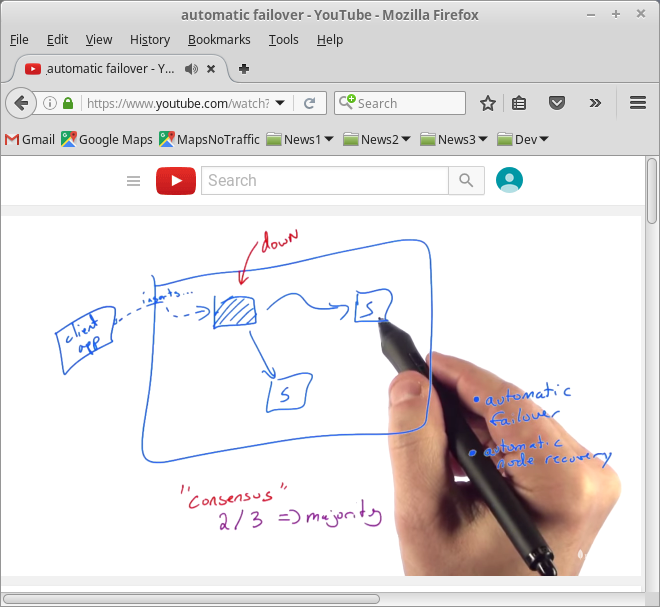 automatic failover - YouTube - Mozilla Firefox
File Edit View History Bookmarks Tools Help
automatic failover - Y...
https://www.youtube.com/watch?
Search
Gmail Google Maps MapsNoTraffic News1 News2 News3 Dev
Search
down
inserts...
client
app
S
S
• automatic
failover
• automatic
node recovery
"Consensus"
2/3 => majority